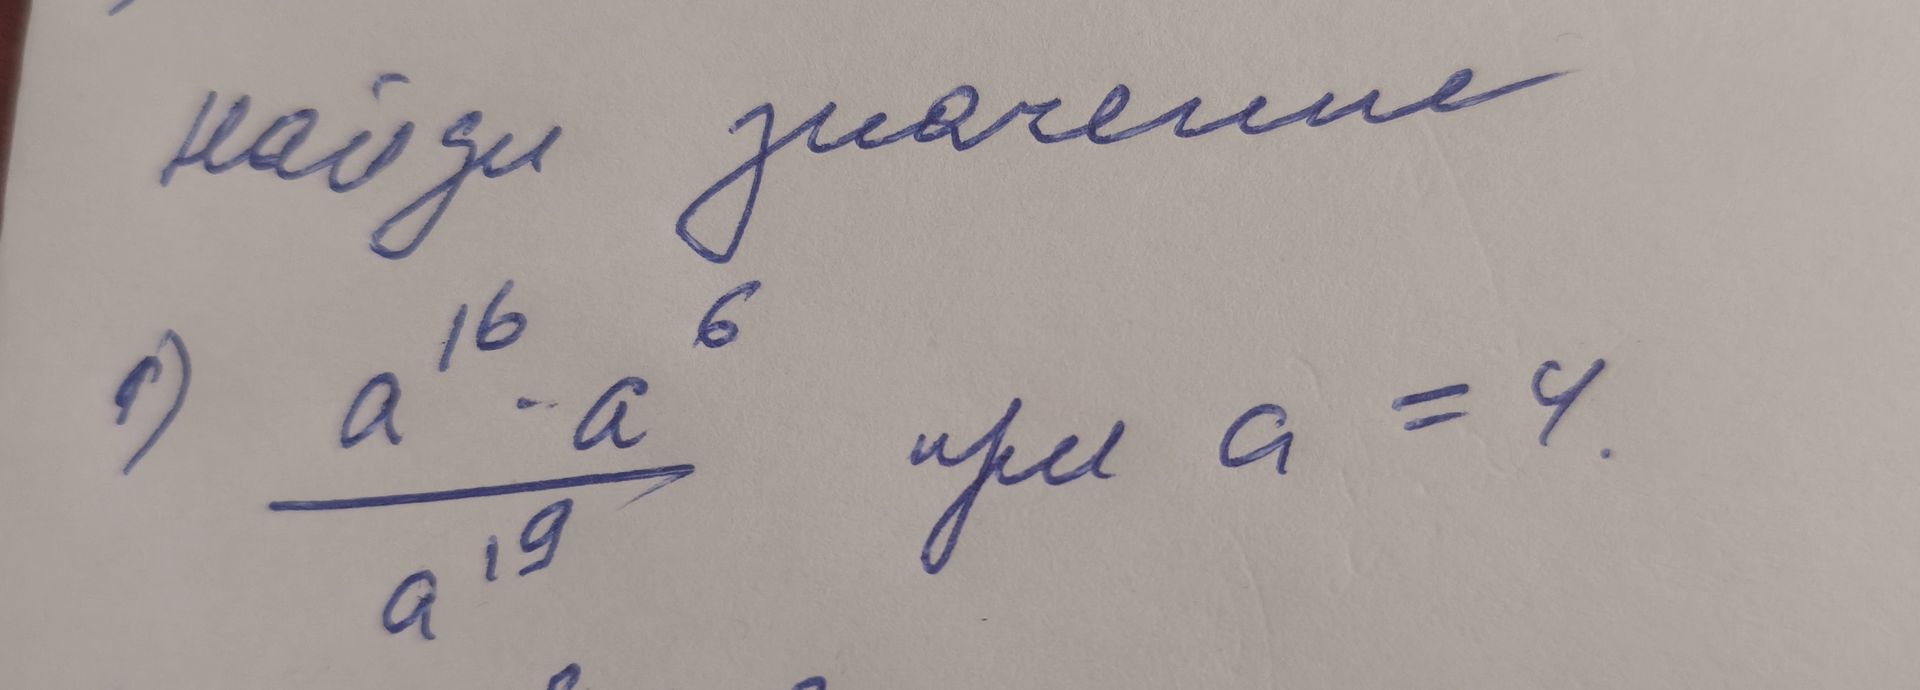 найди значение
1) a^16 · a^6 / a^19 при a = 4.